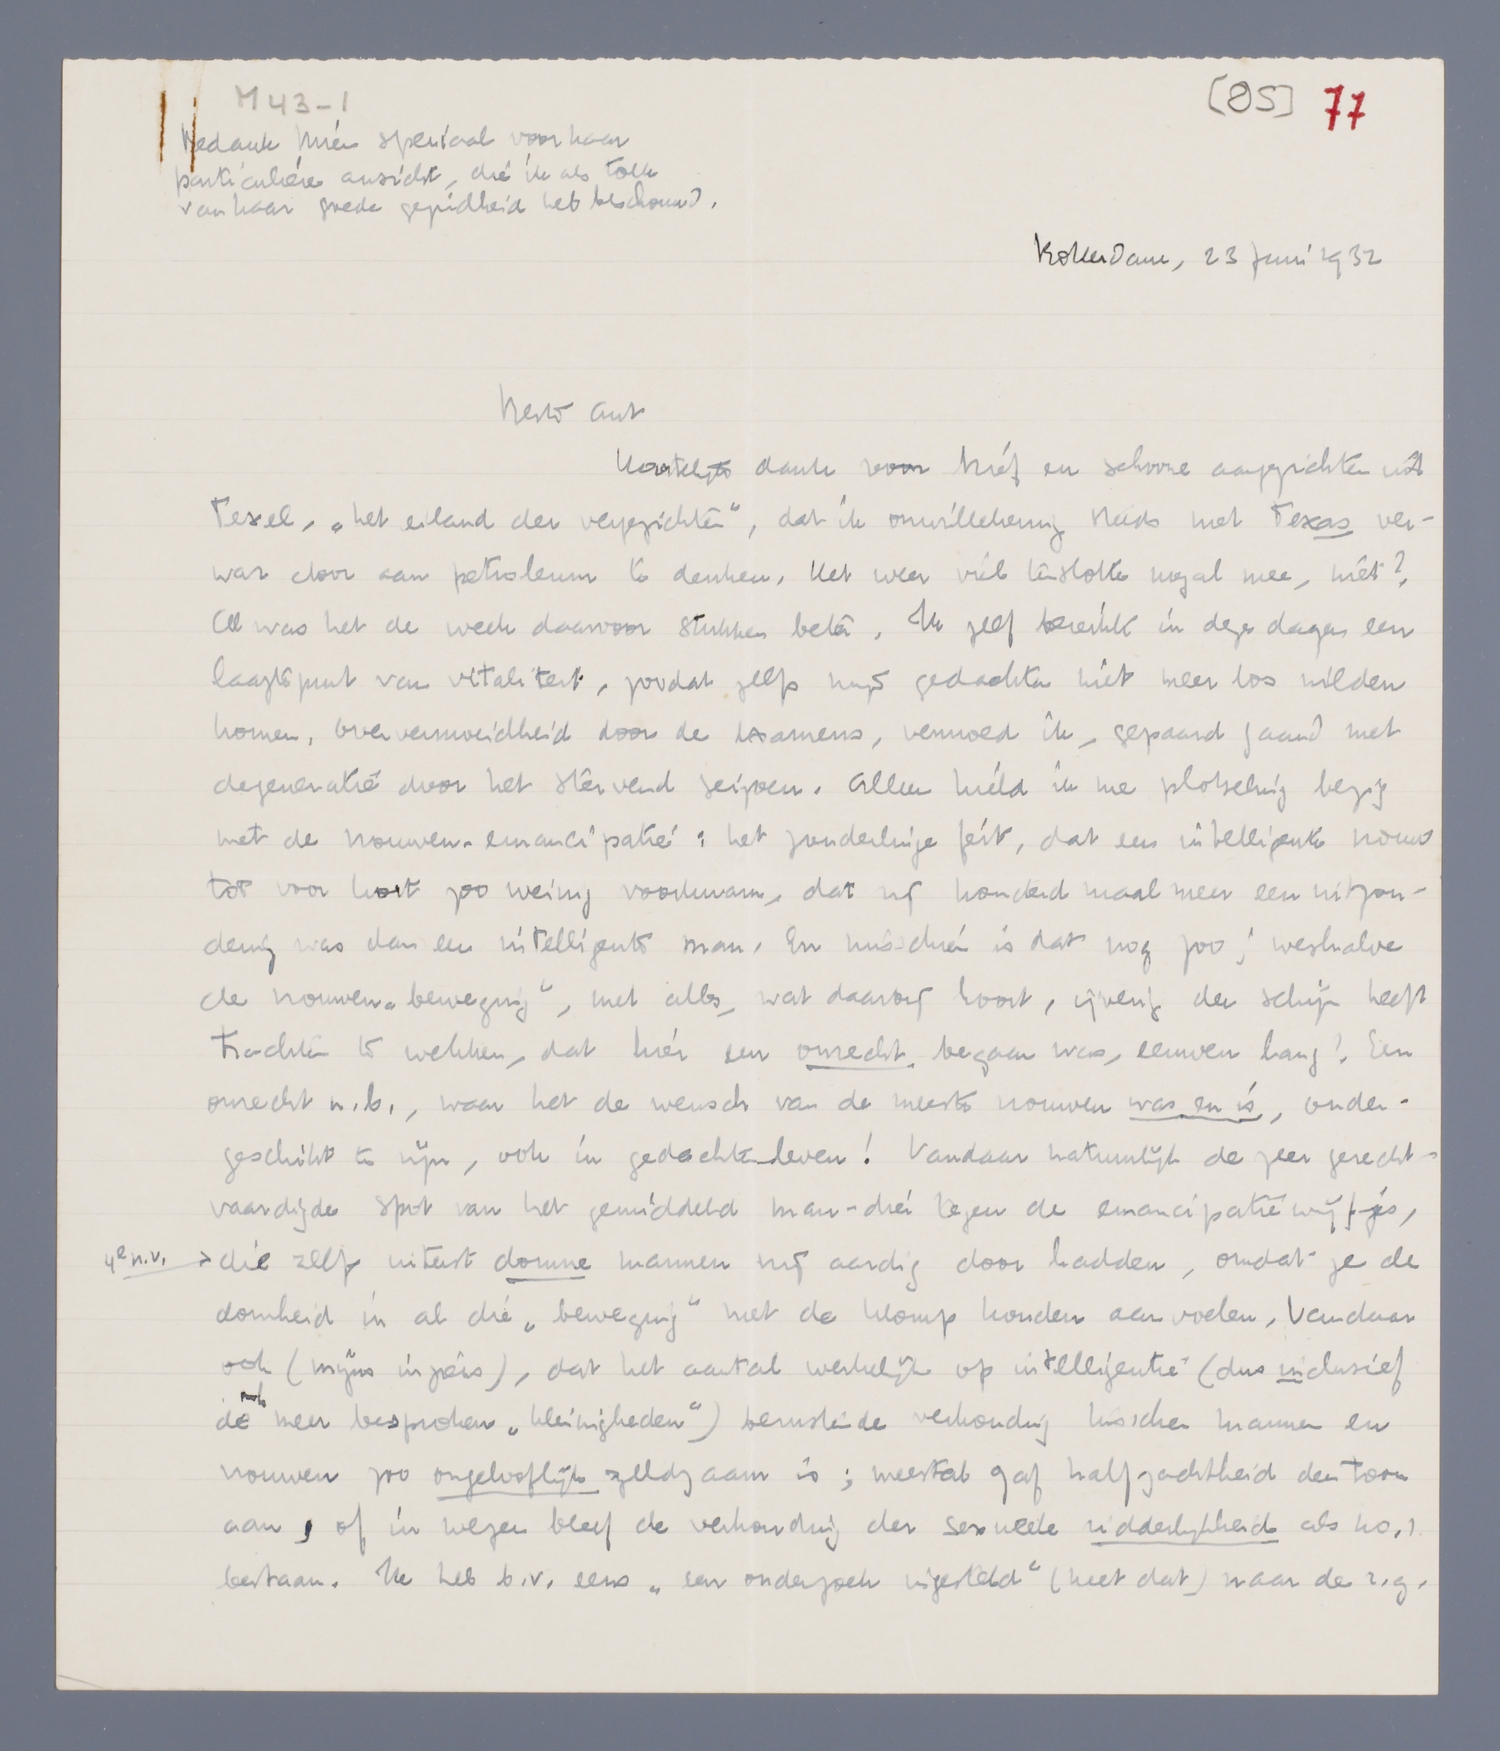 M 43-1
[85] 77
Bedank Mien speciaal voor haar
particuliere ansicht, die ik als tolk
van haar goede gezindheid heb beschouwd.
Rotterdam, 23 Juni 1932
Beste Ant
Hartelijk dank voor brief en schoone aangezichten uit
Texel, „het eiland der vergezichten", dat ik onwillekeurig steeds met Texas ver-
war door aan petroleum te denken. Het weer viel tenslotte nogal mee, niet?,
Al was het de week daarvoor stukken beter. Ik zelf bereikte in deze dagen een
laagtepunt van vitaliteit, zoodat zelfs mijn gedachten niet meer los wilden
komen, oververmoeidheid door de examens, vermoed ik, gepaard gaand met
degeneratie door het stervend seizoen. Alleen hield ik me plotseling bezig
met de vrouwen-emancipatie: het zonderlinge feit, dat een intelligente vrouw
tot voor kort zoo weinig voorkwam, dat zij honderd maal meer een uitzon-
dering was dan een intelligente man. En misschien is dat nog zoo; weshalve
de vrouwen„beweging", met alles, wat daarbij hoort, ijverig den schijn heeft
trachten te wekken, dat hier een onrecht begaan was, eeuwen lang! Een
onrecht n.b., waar het de wensch van de meeste vrouwen was en is, onder-
geschikt te zijn, ook in gedachtenleven! Vandaar natuurlijk de zeer gerecht-
vaardigde spot van het gemiddeld man-dier tegen de emancipatiewijfjes,
4e n.v. → die zelfs uiterst domme mannen vrij aardig door hadden, omdat ze de
domheid in al die „beweging" met de klomp konden aanvoelen. Vandaar
ook (mijns inziens), dat het aantal werkelijk op intelligentie (dus inclusief
de reeds meer besproken „kleinigheden") berustende verhouding tusschen mannen en
vrouwen zoo ongelooflijk zeldzaam is; meestal gaf halfzachtheid den toon
aan, of in wezen bleef de verhouding der sexueele ridderlijkheid als
bestaan. Ik heb b.v. eens „een onderzoek ingesteld" (heet dat) naar de z.g.